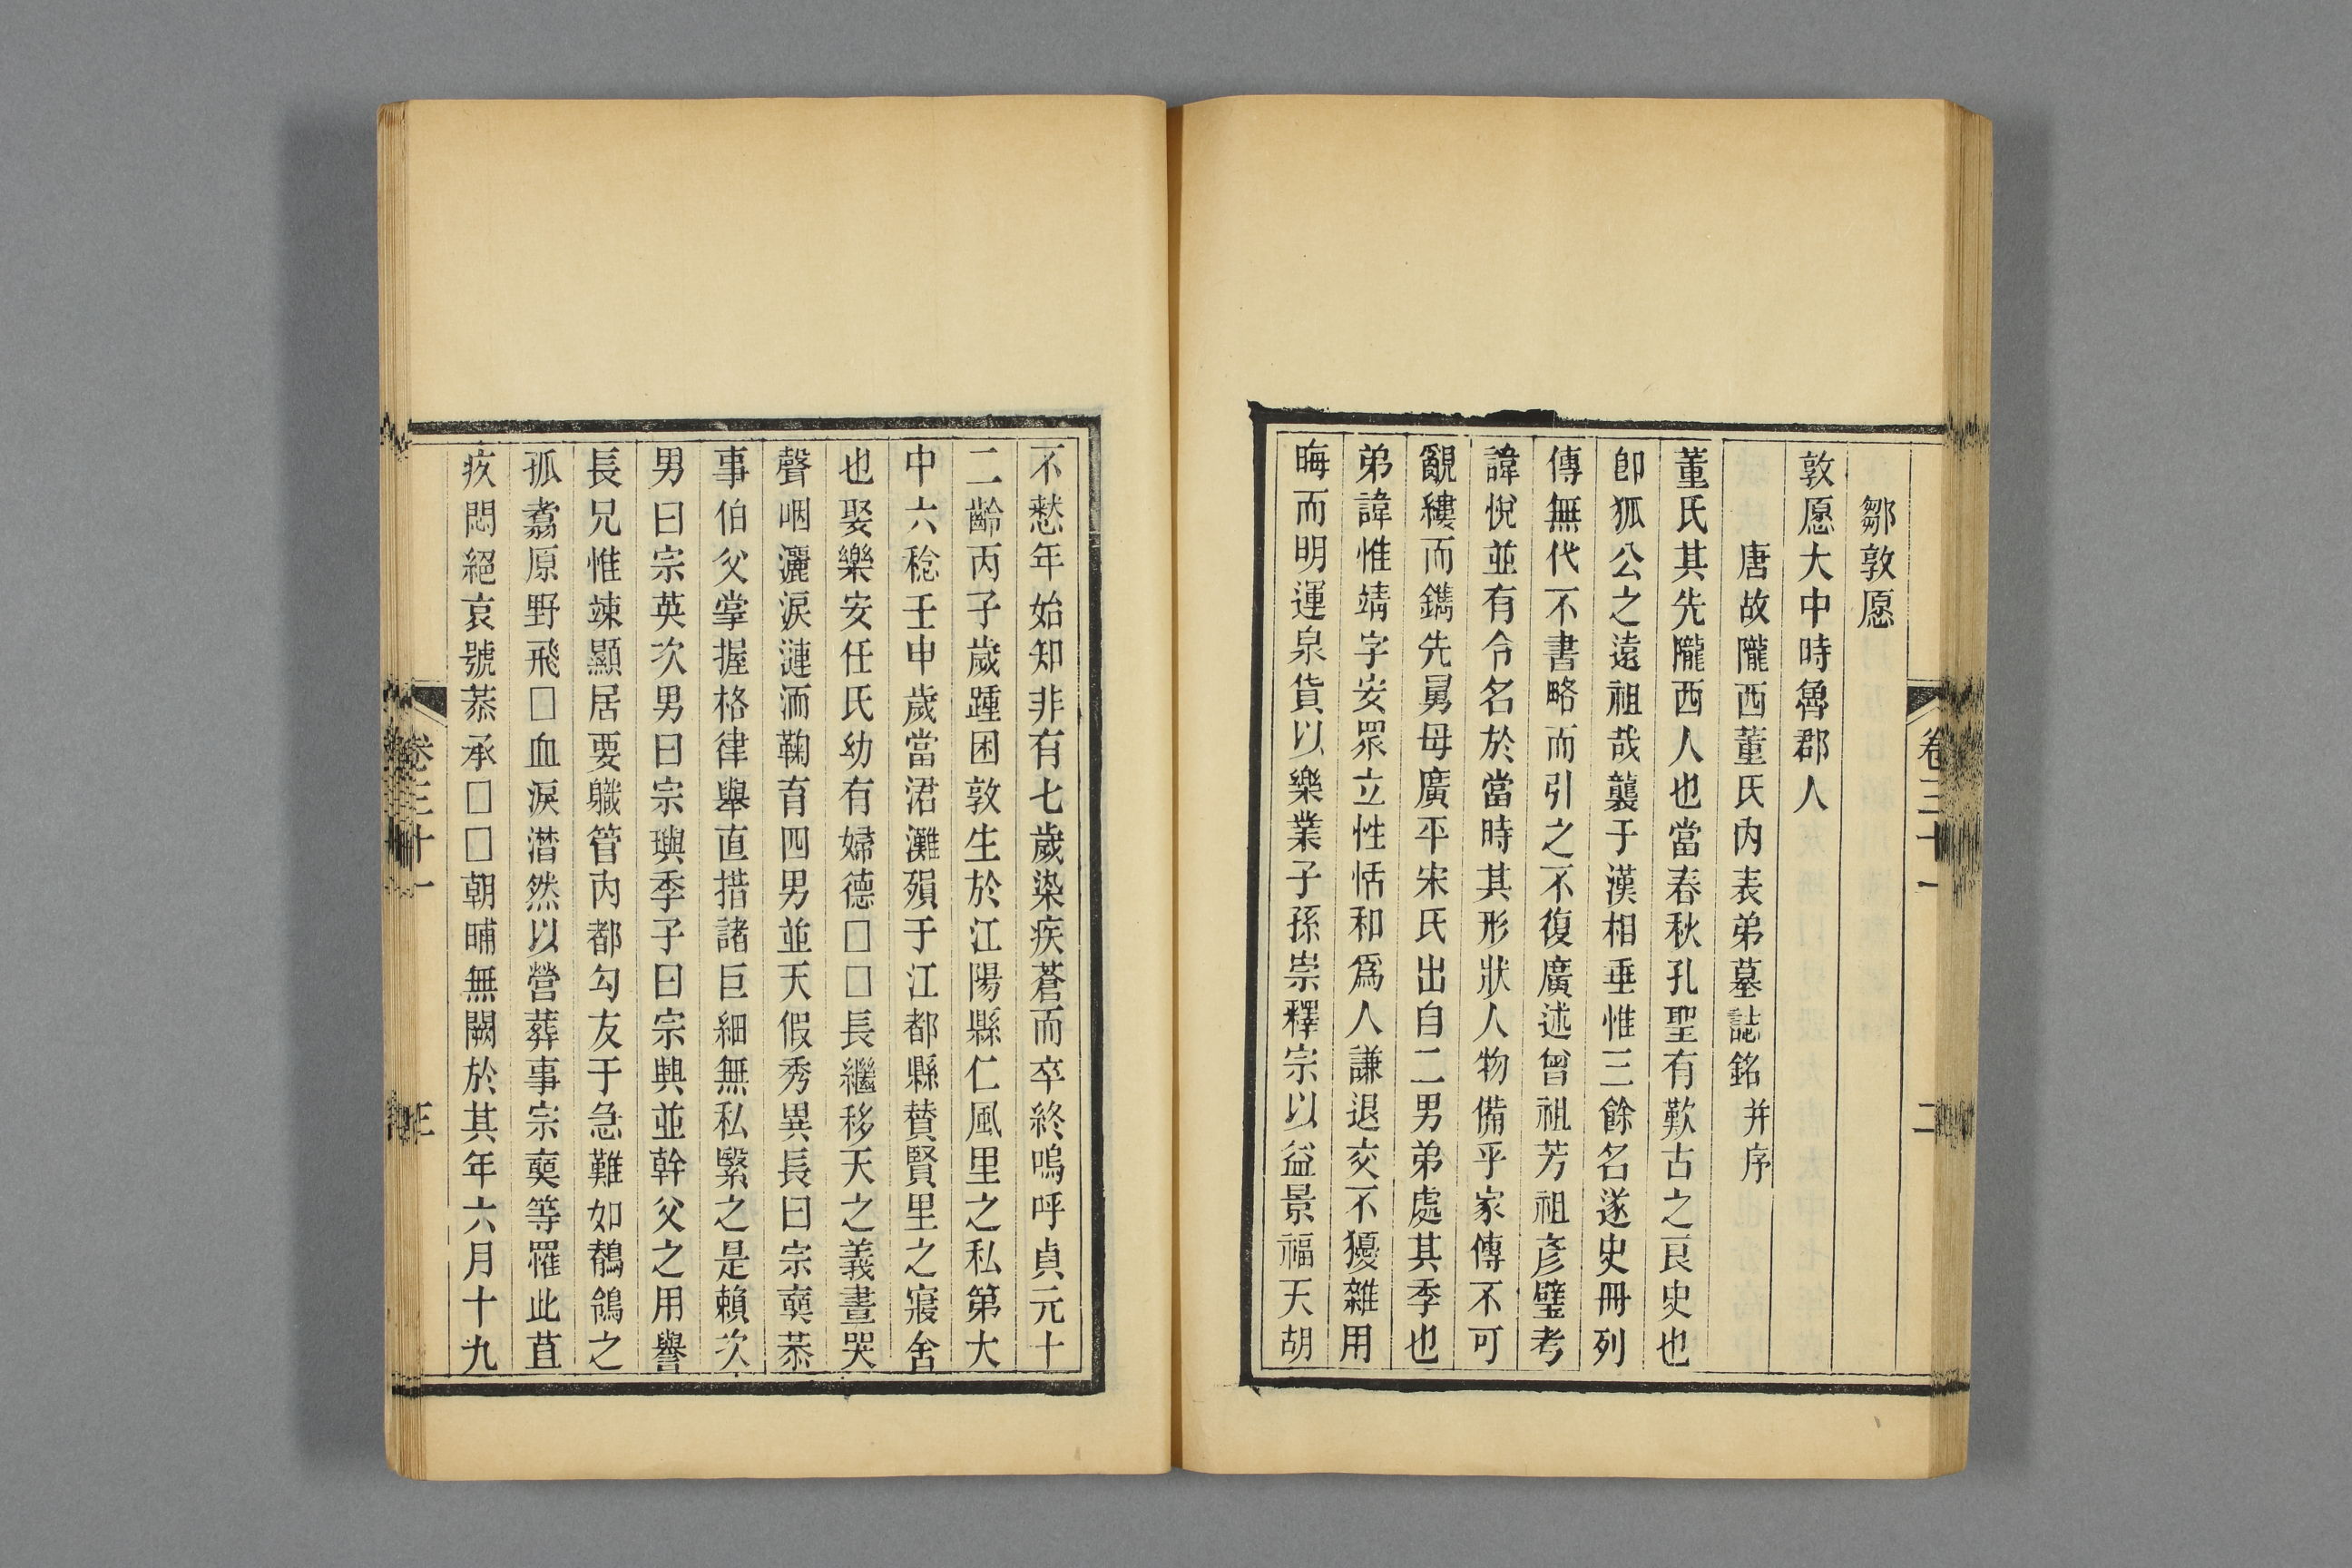 鄒敦愿
敦愿大中時魯郡人
唐故隴西董氏內表弟墓誌銘并序
董氏其先隴西人也當春秋孔聖有歎古之良史也
卽狐公之遠祖哉襲于漢相垂惟三餘名遂史冊列
傳無代不書略而引之不復廣述曾祖芳祖彥璧考
諱悅並有令名於當時其形狀人物備乎家傳不可
覶縷而鐫先舅母廣平宋氏出自二男弟處其季也
弟諱惟靖字安眾立性恬和爲人謙退交不獶雜用
晦而明運泉貨以樂業子孫崇釋宗以益景福天胡
卷三十一
二
不憖年始知非有七歲染疾蒼而卒終嗚呼貞元十
二齡丙子歲踵困敦生於江陽縣仁風里之私第大
中六稔壬申歲當涒灘殞于江都縣贊賢里之寢舍
也娶樂安任氏幼有婦德□□長繼移天之義晝哭
聲咽灑淚漣洏鞠育四男並天假秀異長曰宗奭恭
事伯父掌握格律舉直措諸巨細無私繄之是賴次
男曰宗英次男曰宗璵季子曰宗興並幹父之用譽
長兄惟竦顯居要職管內都勾友于急難如鶺鴒之
孤翥原野飛□血淚潸然以營葬事宗奭等罹此苴
疚悶絕哀號恭承□□朝晡無闕於其年六月十九
卷三十一
三